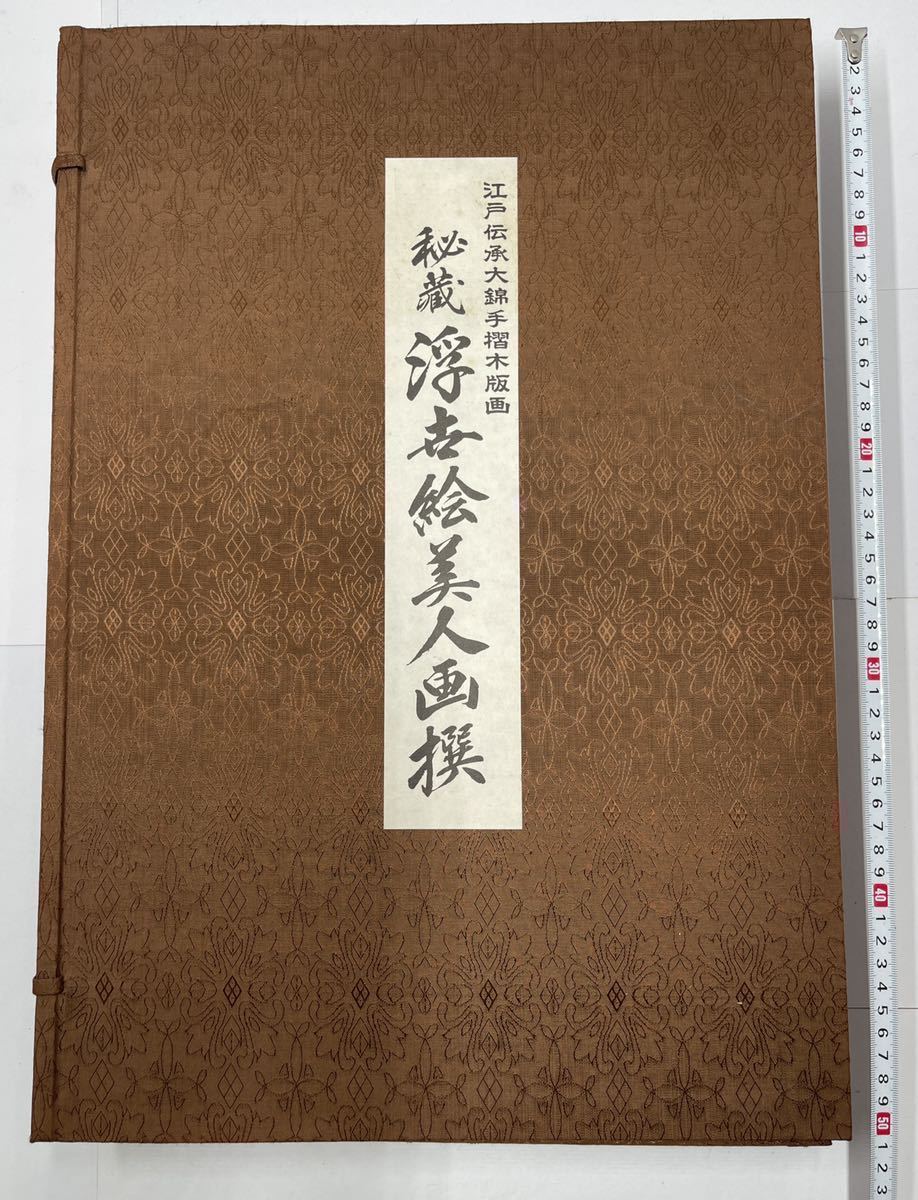 江戸伝承大錦手摺木版画
秘蔵 浮世絵美人画撰
2
3
4
5
6
7
8
9
10
1
2
3
4
5
6
7
8
9
20
1
2
3
4
5
6
7
8
9
30
1
2
3
4
5
6
7
8
9
40
1
2
3
4
5
6
7
8
9
50
1
2
3